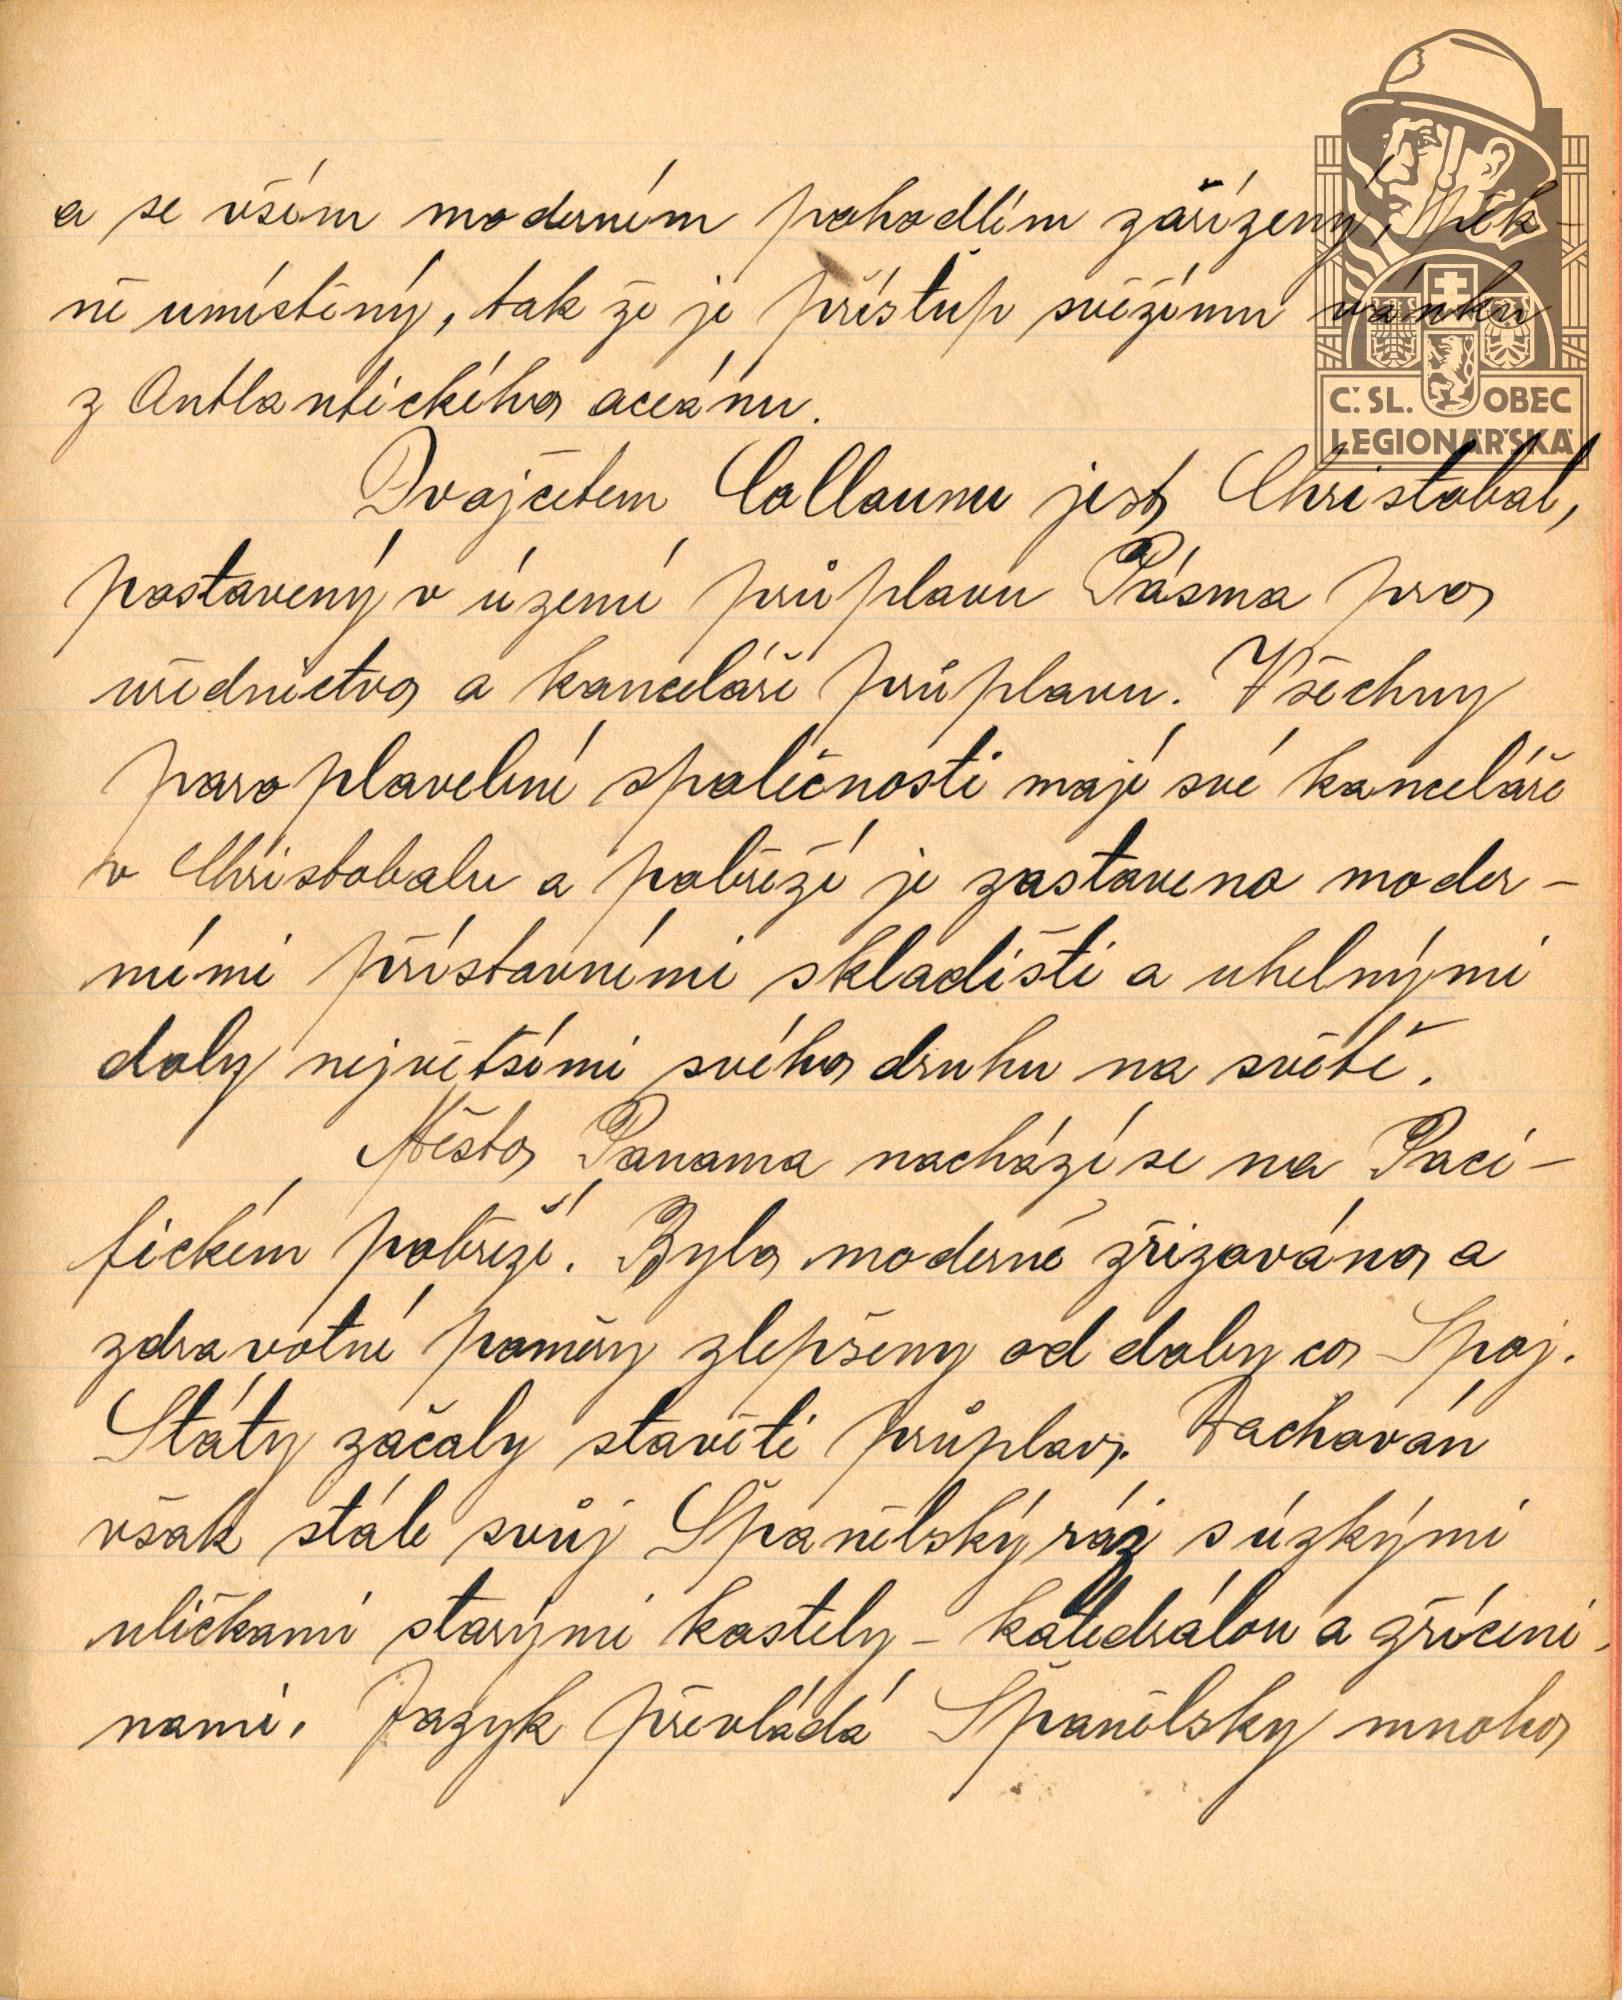 a se vším moderním pohodlím zářízeny, pěk-
ně umístěný, tak že je přístup svěžímu vánku
z Antlantického oceánu.
Dvojčetem Collounu jest Christobal,
postavený v území průplavu Pásma pro
uřednictvo a kanceláři průplavu. Všechny
paroplavební společnosti mají své kanceláře
v Christobalu a pobřeží je zastaveno moder-
ními přístavními skladišti a uhelnými
doly největšími svého druhu na světě.
Město Panama nachází se na Paci-
fickém pobřeží. Bylo moderně zřizováno a
zdravotní poměry zlepšeny od doby co Spoj.
Státy začaly stavěti průplav. Zachován
však stále svůj Španělský ráz s úzkými
uličkami starými kostely - katedrálou a zříceni-
nami. Jazyk převládá Španělsky mnoho
Č. SL. OBEC
LEGIONÁŘSKÁ